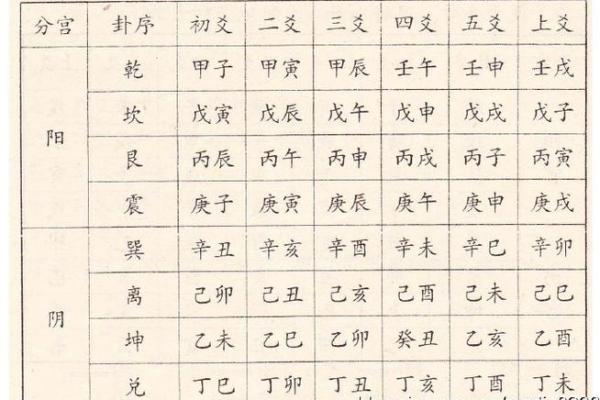 分宫 卦序 初爻 二爻 三爻 四爻 五爻 上爻
阳
乾 甲子 甲寅 甲辰 壬午 壬申 壬戌
坎 戊寅 戊辰 戊午 戊申 戊戌 戊子
艮 丙辰 丙午 丙申 丙戌 丙子 丙寅
震 庚子 庚寅 庚辰 庚午 庚申 庚戌
阴
巽 辛丑 辛亥 辛酉 辛未 辛巳 辛卯
离 己卯 己丑 己亥 己酉 己未 己巳
坤 乙未 乙巳 乙卯 癸丑 乙亥 乙酉
兑 丁巳 丁卯 丁丑 丁亥 丁酉 丁未